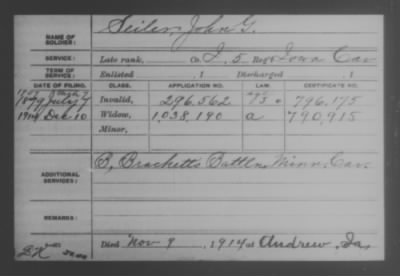 Seiler, John G.
NAME OF SOLDIER:
SERVICE: Late rank, Co. I, 5 Reg't Iowa Cav
TERM OF SERVICE: Enlisted , 1 Discharged , 1
DATE OF FILING. CLASS. APPLICATION NO. LAW. CERTIFICATE NO.
1879 July 7 Invalid, 296.562 796,175
1914 Dec 10 Widow, 1,038,190 a 790,915
Minor,
ADDITIONAL SERVICES: B, Bracketts Battln. Minn. Cav.
REMARKS:
Died Nov 9, 1914 at Andrew, Ia